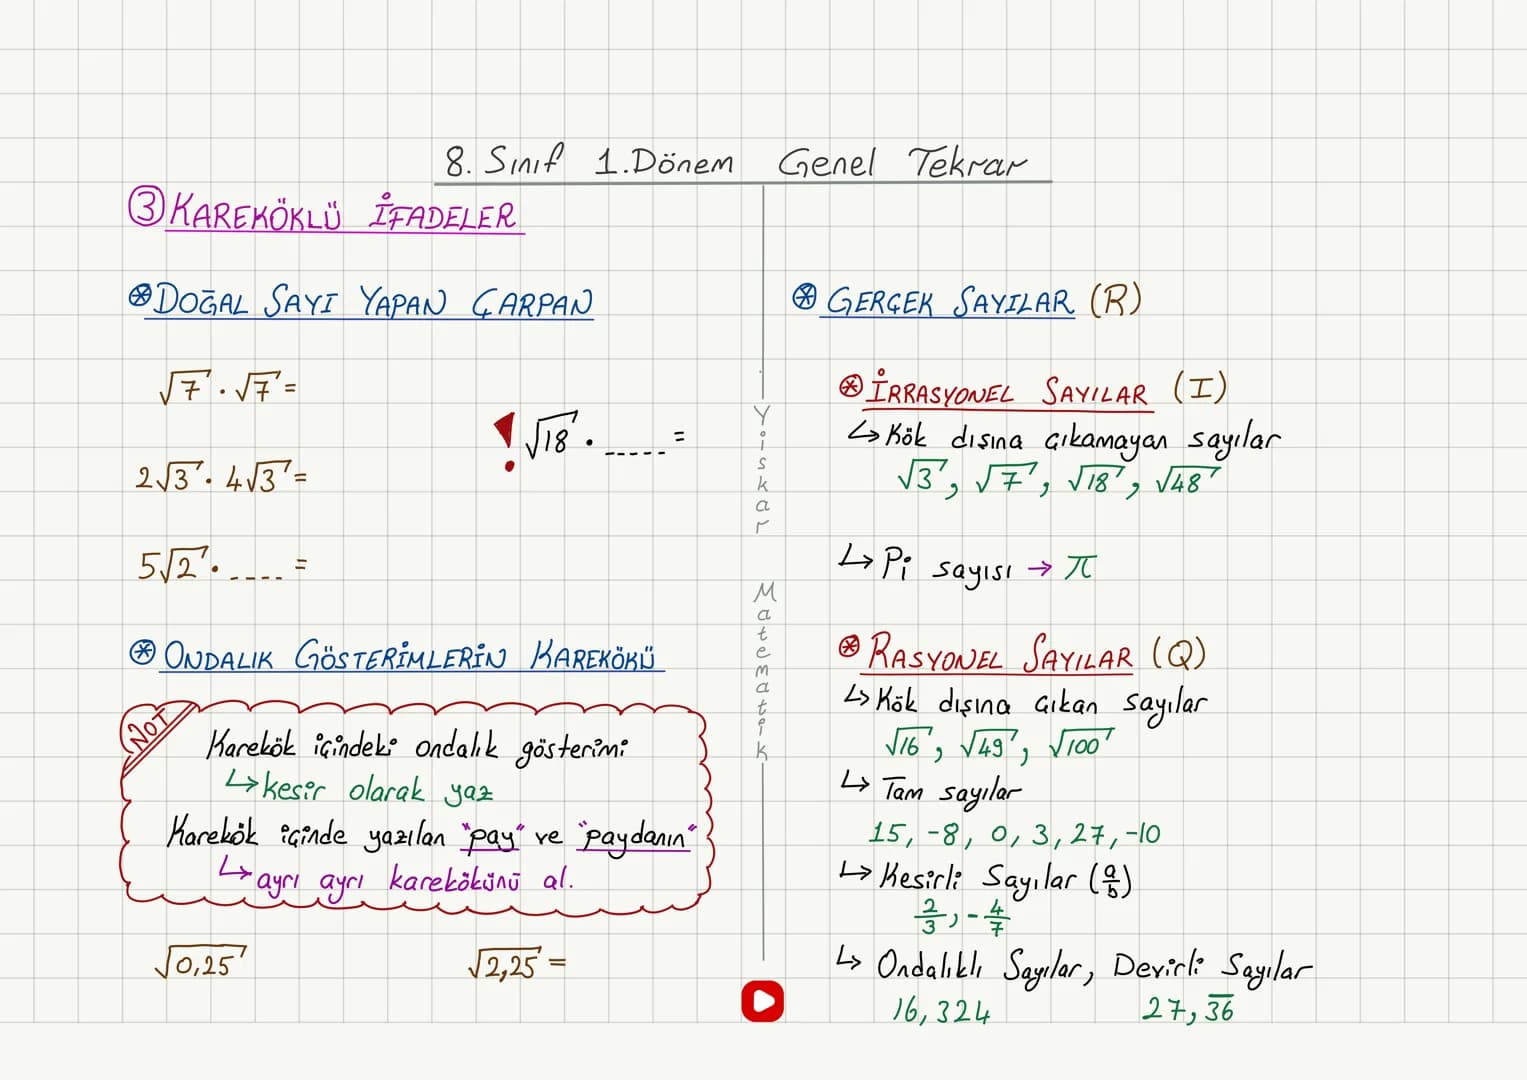 8. Sınıf 1.Dönem Genel Tekrar
③ KAREKÖKLÜ İFADELER
⊛ DOĞAL SAYI YAPAN ÇARPAN
√7 . √7 =
! √18 . ----- =
2√3 . 4√3 =
5√2 . ---- =
⊛ ONDALIK GÖSTERİMLERİN KAREKÖKÜ
NOT
Karekök içindeki ondalık gösterimi
↳ kesir olarak yaz
Karekök içinde yazılan "pay" ve "paydanın"
↳ ayrı ayrı karekökünü al.
√0,25
√2,25 =
Yiskar Matematik
⊛ GERÇEK SAYILAR (R)
⊛ İRRASYONEL SAYILAR (I)
↳ Kök dışına çıkamayan sayılar
√3, √7, √18, √48
↳ Pi sayısı → π
⊛ RASYONEL SAYILAR (Q)
↳ Kök dışına çıkan sayılar
√16, √49, √100
↳ Tam sayılar
15, -8, 0, 3, 27, -10
↳ Kesirli Sayılar (a/b)
2/3, -4/7
↳ Ondalıklı Sayılar, Devirli Sayılar
16,324 27,3̅6̅